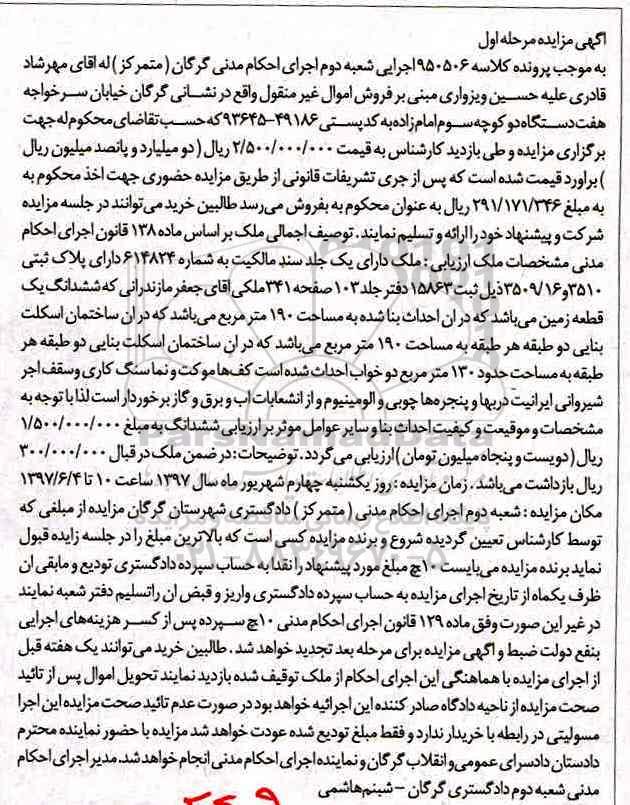 اگهی مزایده مرحله اول
به موجب پرونده کلاسه ۹۵۰۵۰۶ اجرایی شعبه دوم اجرای احکام مدنی گرگان ( متمرکز ) له اقای مهرشاد
قادری علیه حسین ویزواری مبنی بر فروش اموال غیر منقول واقع در نشانی گرگان خیابان سرخواجه
هفت دستگاه دو کوچه سوم امام زاده به کد پستی ۴۹۱۸۶-۹۳۶۴۵ که حسب تقاضای محکوم له جهت
برگزاری مزایده و طی بازدید کارشناس به قیمت ۲/۵۰۰/۰۰۰/۰۰۰ ریال ( دو میلیارد و پانصد میلیون ریال
) براورد قیمت شده است که پس از جری تشریفات قانونی از طریق مزایده حضوری جهت اخذ محکوم به
به مبلغ ۲۹۱/۱۷۱/۳۴۶ ریال به عنوان محکوم به بفروش می رسد طالبین خرید می توانند در جلسه مزایده
شرکت و پیشنهاد خود را ارائه و تسلیم نمایند . توصیف اجمالی ملک بر اساس ماده ۱۳۸ قانون اجرای احکام
مدنی مشخصات ملک ارزیابی : ملک دارای یک جلد سند مالکیت به شماره ۶۱۴۸۲۴ دارای پلاک ثبتی
۳۵۱۰و۳۵۰۹/۱۶ ذیل ثبت ۱۵۸۶۳ دفتر جلد ۱۰۳ صفحه ۳۴۱ ملکی اقای جعفر مازندرانی که ششدانگ یک
قطعه زمین می باشد که در ان احداث بنا شده به مساحت ۱۹۰ متر مربع می باشد که در ان ساختمان اسکلت
بنایی دو طبقه هر طبقه به مساحت ۱۹۰ متر مربع می باشد که در ان ساختمان اسکلت بنایی دو طبقه هر
طبقه به مساحت حدود ۱۳۰ متر مربع دو خواب احداث شده است کف ها موکت و نما سنگ کاری وسقف اجر
شیروانی ایرانیت دربها و پنجره ها چوبی و الومینیوم و از انشعابات اب و برق و گاز برخوردار است لذا با توجه به
مشخصات و موقیعت و کیفیت احداث بنا و سایر عوامل موثر بر ارزیابی ششدانگ به مبلغ ۱/۵۰۰/۰۰۰/۰۰۰
ریال ( دویست و پنجاه میلیون تومان ) ارزیابی می گردد . توضیحات : در ضمن ملک در قبال ۳۰۰/۰۰۰/۰۰۰
ریال بازداشت می باشد . زمان مزایده : روز یکشنبه چهارم شهریور ماه سال ۱۳۹۷ ساعت ۱۰ تا ۱۳۹۷/۶/۴
مکان مزایده : شعبه دوم اجرای احکام مدنی ( متمرکز ) دادگستری شهرستان گرگان مزایده از مبلغی که
توسط کارشناس تعیین گردیده شروع و برنده مزایده کسی است که بالاترین مبلغ را در جلسه زایده قبول
نماید برنده مزایده می بایست ۱۰چ مبلغ مورد پیشنهاد را نقدا به حساب سپرده دادگستری تودیع و مابقی ان
ظرف یکماه از تاریخ اجرای مزایده به حساب سپرده دادگستری واریز و قبض ان راتسلیم دفتر شعبه نمایند
در غیر این صورت وفق ماده ۱۲۹ قانون اجرای احکام مدنی ۱۰چ سپرده پس از کسر هزینه های اجرایی
بنفع دولت ضبط و اگهی مزایده برای مرحله بعد تجدید خواهد شد . طالبین خرید می توانند یک هفته قبل
از اجرای مزایده با هماهنگی این اجرای احکام از ملک توقیف شده بازدید نمایند تحویل اموال پس از تائید
صحت مزایده از ناحیه دادگاه صادر کننده این اجرائیه خواهد بود در صورت عدم تائید صحت مزایده این اجرا
مسولیتی در رابطه با خریدار ندارد و فقط مبلغ تودیع شده عودت خواهد شد مزایده با حضور نماینده محترم
دادستان دادسرای عمومی و انقلاب گرگان و نماینده اجرای احکام مدنی انجام خواهد شد. مدیر اجرای احکام
مدنی شعبه دوم دادگستری گرگان – شبنم هاشمی